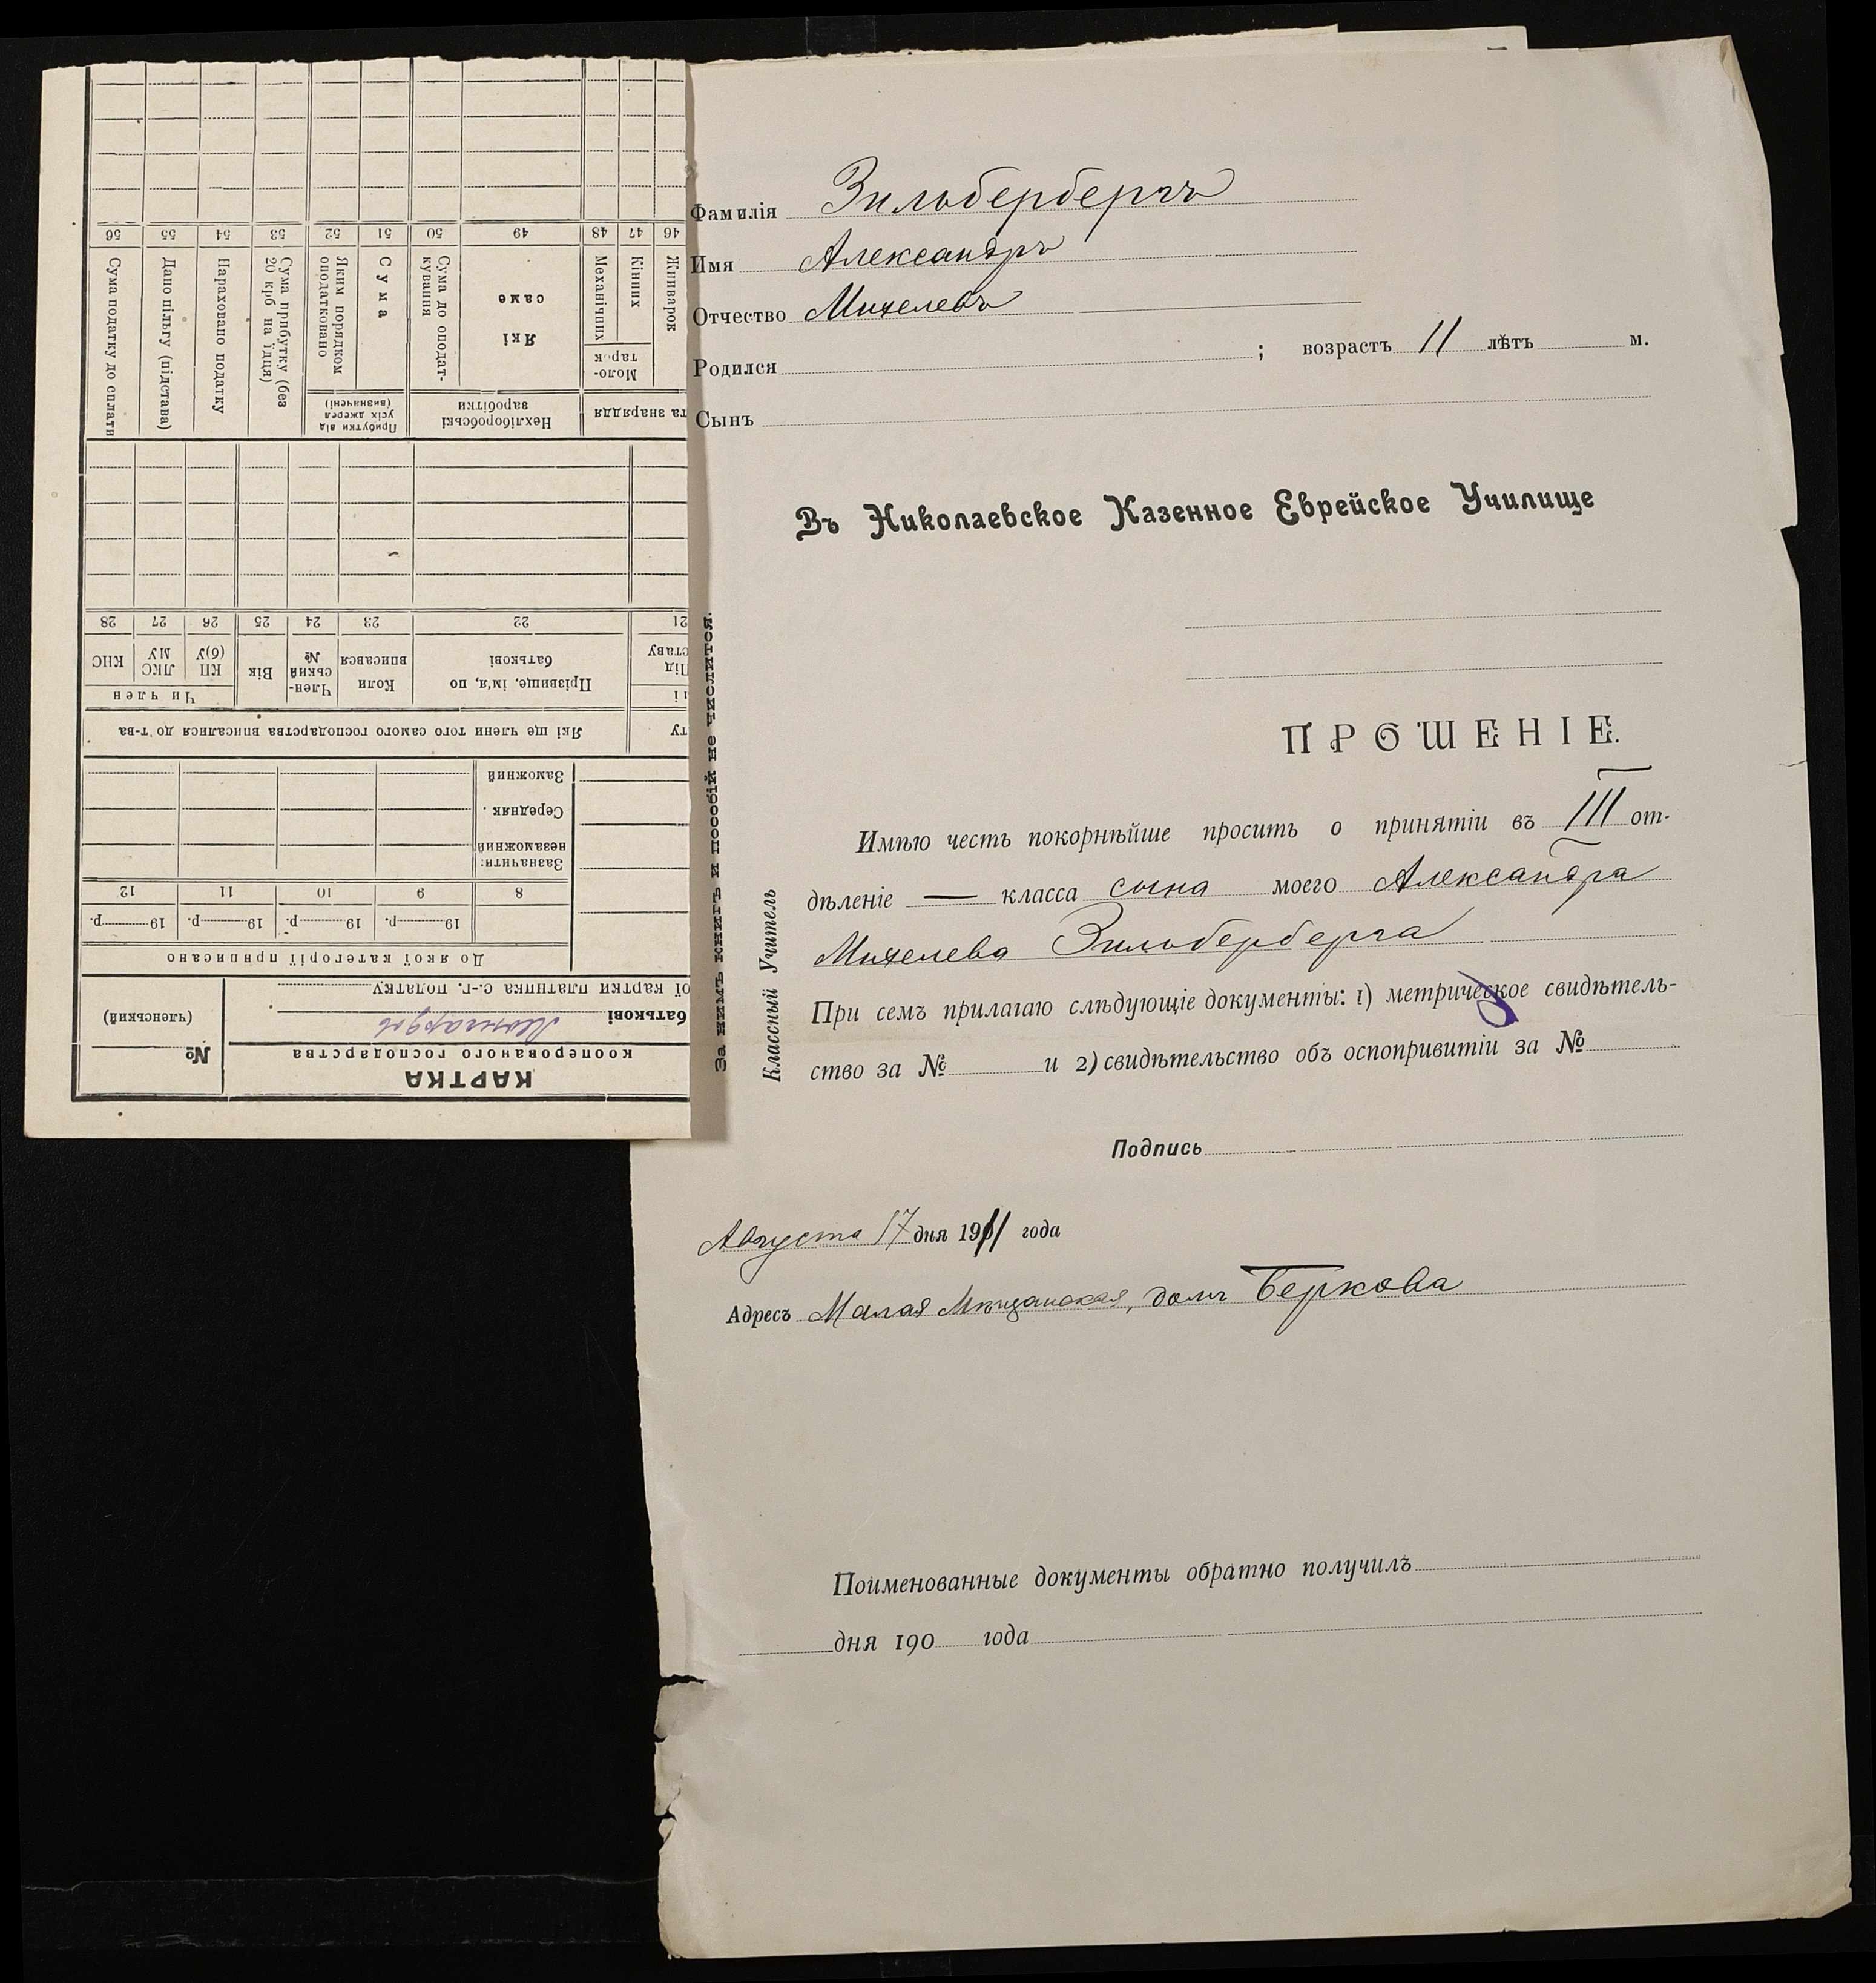 Фамилія Зильберберг
Имя Александръ
Отчество Михелевъ
Родился ; возрастъ 11 лѣтъ м.
Сынъ
Въ Николаевское Казенное Еврейское Училище
ПРОШЕНІЕ.
Имѣю честь покорнѣйше просить о принятіи въ III от-
дѣленіе — класса сына моего Александра
Михелева Зильберберга
При семъ прилагаю слѣдующіе документы: 1) метрическое свидѣтель-
ство за № и 2) свидѣтельство объ оспопривитіи за №
Подпись
Августа 17 дня 1911 года
Адресъ Малая Мѣщанская, домъ Беркова
Поименованные документы обратно получилъ
дня 190 года
За нимъ книгъ и пособій не числится.
Классный Учитель
КАРТКА
кооперованого господарства
№
(членський)
батькові
ої картки платника с.-г. податку
До якої категорії приписано
19 р. 19 р. 19 р. 19 р.
8 9 10 11 12
Зазначити:
незаможний
Середняк
Заможний
ту Які ще члени того самого господарства вписалися до т-ва
і Прізвище, ім'я, по батькові Коли вписався Член-ський № Вік Чи член
Під ставу КП (б)У ЛКС МУ КНС
21 22 23 24 25 26 27 28
та знаряддя Нехліборобські заробітки Прибутки від усіх джерел (визначені)
Жниварок Кінних Механічних Моло-тарок Які саме Сума до оподат-кування Сума Яким порядком оподатковано Сума прибутку (без 20 крб на їдця) Нараховано податку Дано пільгу (підстава) Сума податку до сплати
46 47 48 49 50 51 52 53 54 55 56